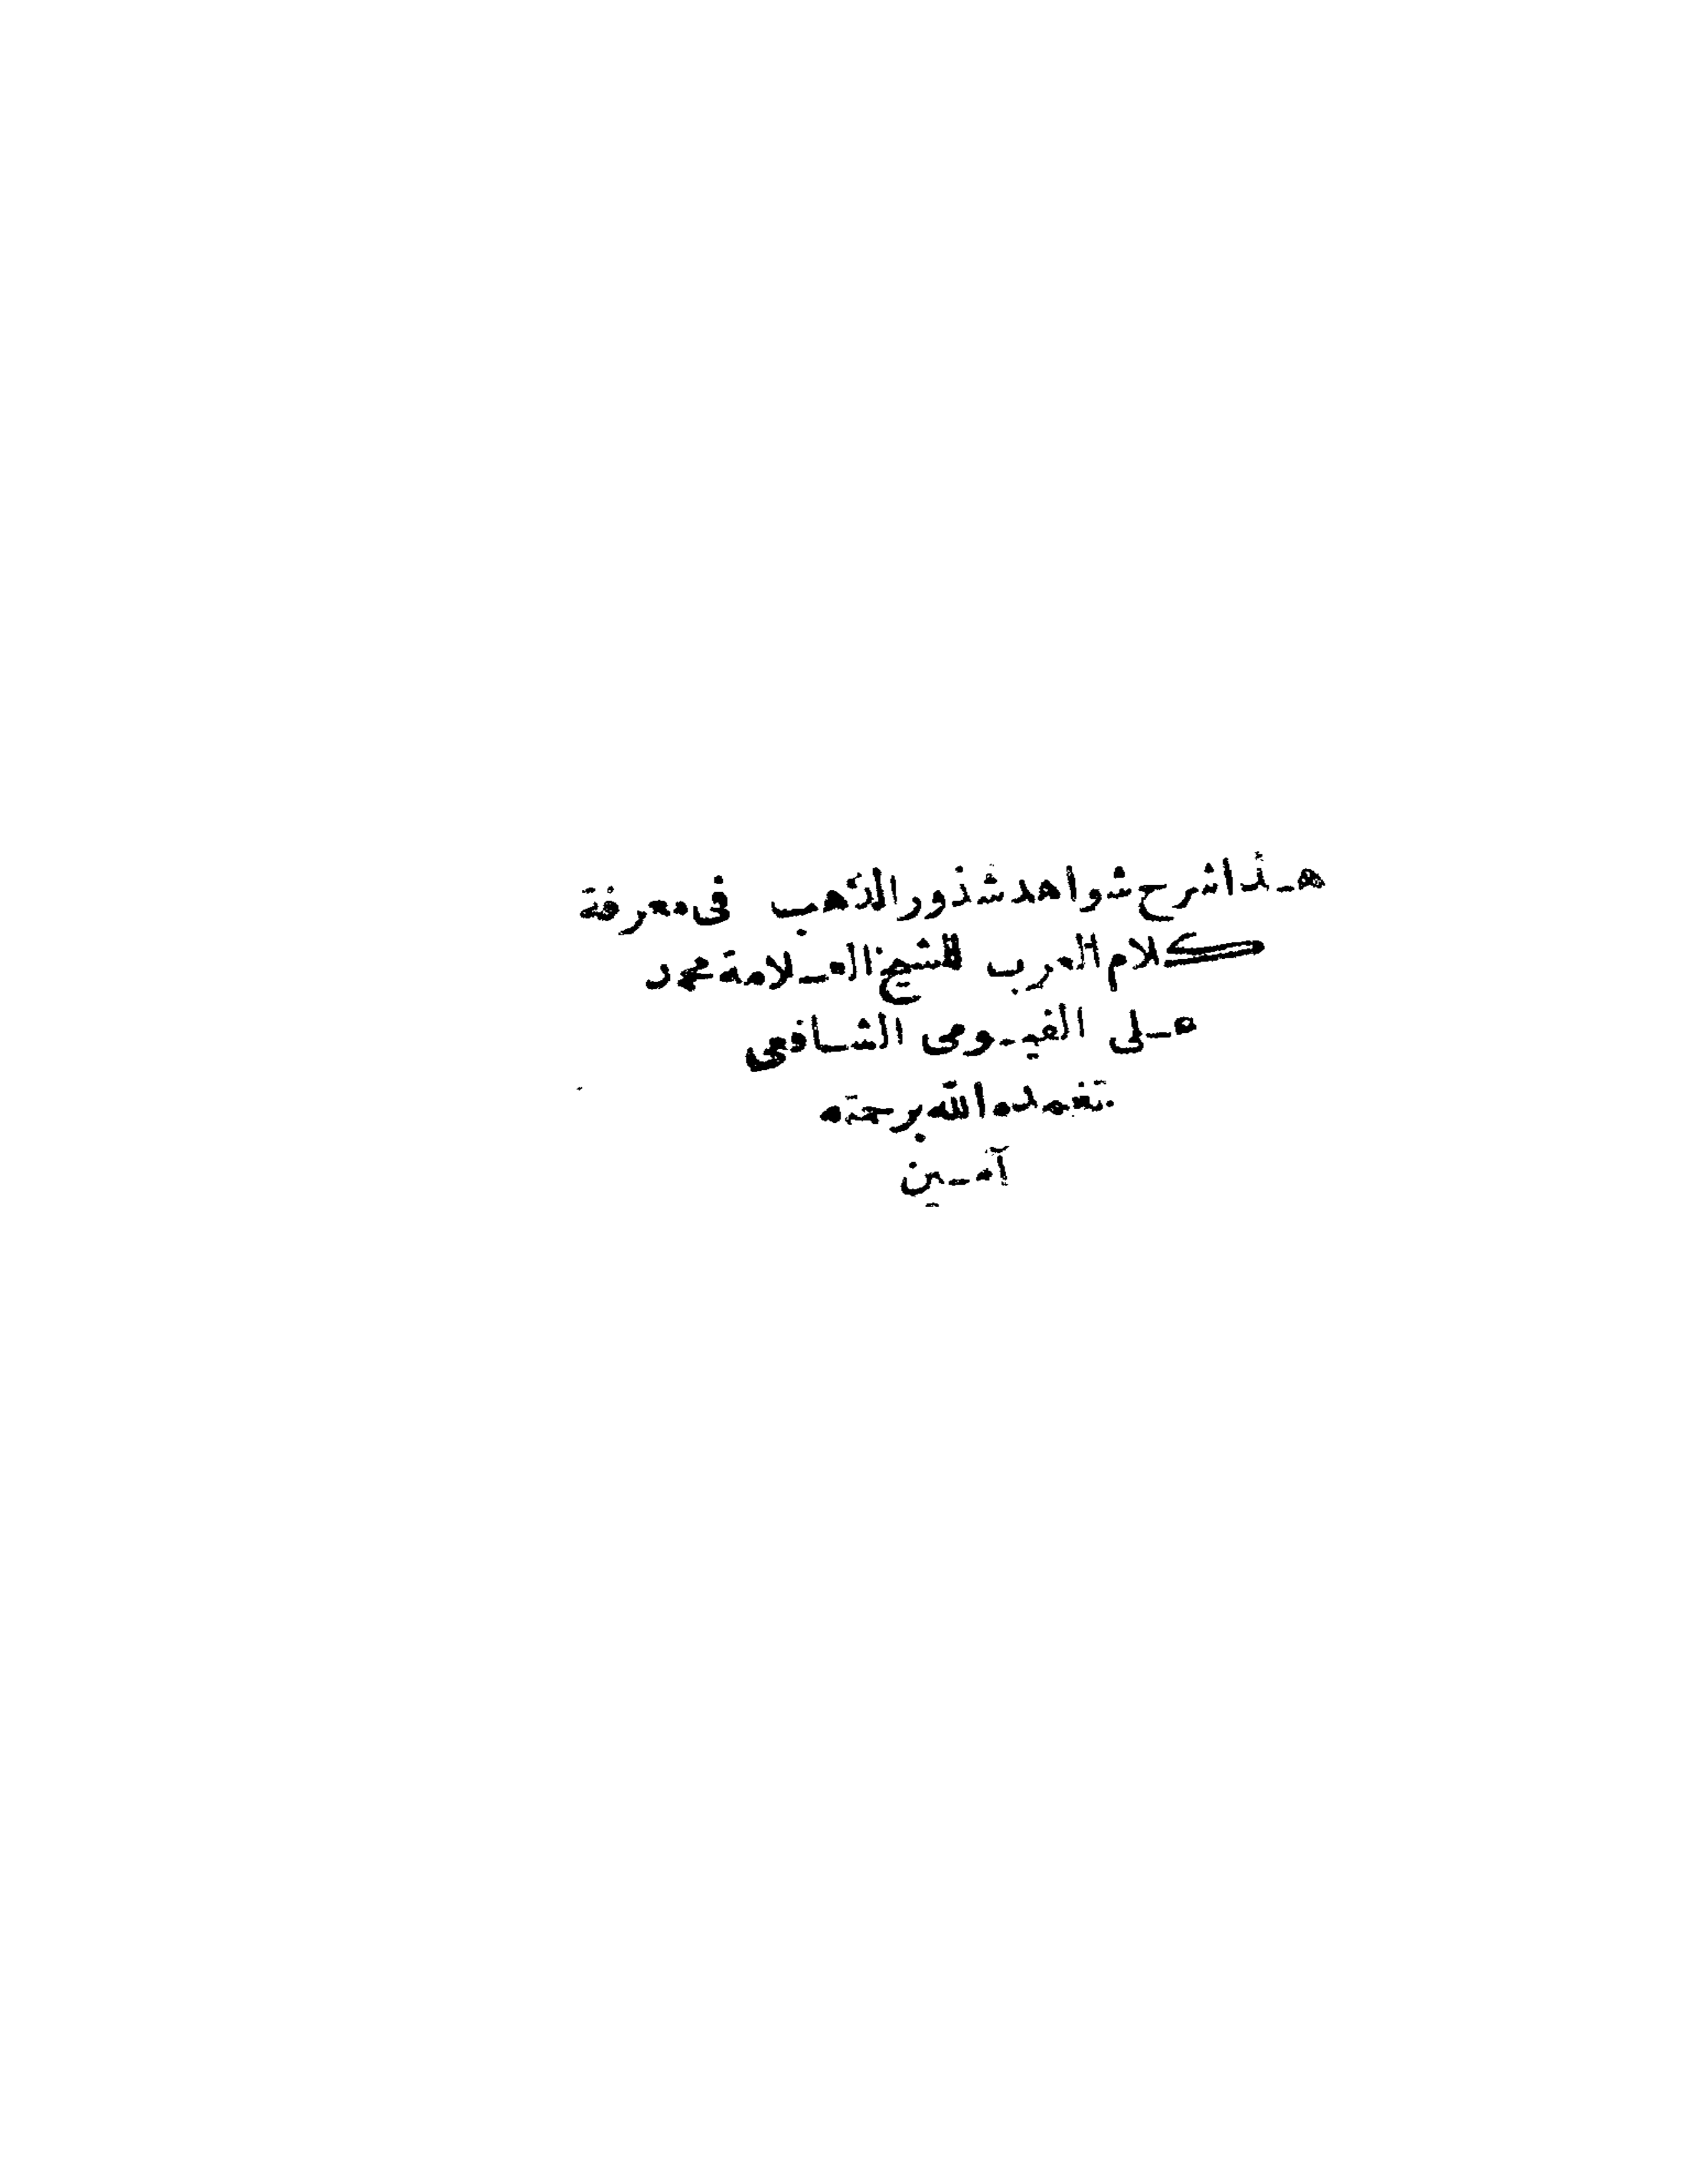 هذا شرح شواهد شذور الذهب فى معرفة
كلام العرب للشيخ العلامة محمد
على الفيومى الشافعى
تغمده الله برحمته
آمين